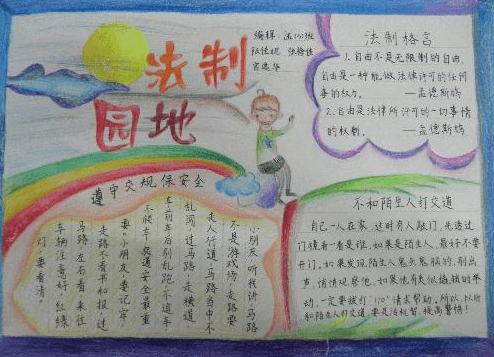 法制
园地
编辑:
法制格言
1.自由不是无限制的自由,
自由是一种能做法律许可的任何
事的权力。 —孟德斯鸠
2.自由是法律所许可的一切事情
的权利。 —孟德斯鸠
遵守交规保安全
小朋友听我讲,马路
不是游戏场,走路要
走人行道,马路当中不
乱闯,过马路,走横道
车前车后别乱跑,不追车
不爬车,交通安全最重
要。小朋友,要记牢,
走路不看书和报,过
马路,左右看,来往
车辆注意好,红绿
灯,要看清。
不和陌生人打交道
自己一人在家,这时有人敲门,先透过
门镜看一看是谁。如果是陌生人,最好不要
开门。如果发现陌生人鬼头鬼脑的,别出
声,悄悄观察他,如果他有类似撬锁的举
动,一定要拨打“110”请求帮助。所以,
和陌生人打交道,要灵活机智,提高警惕!